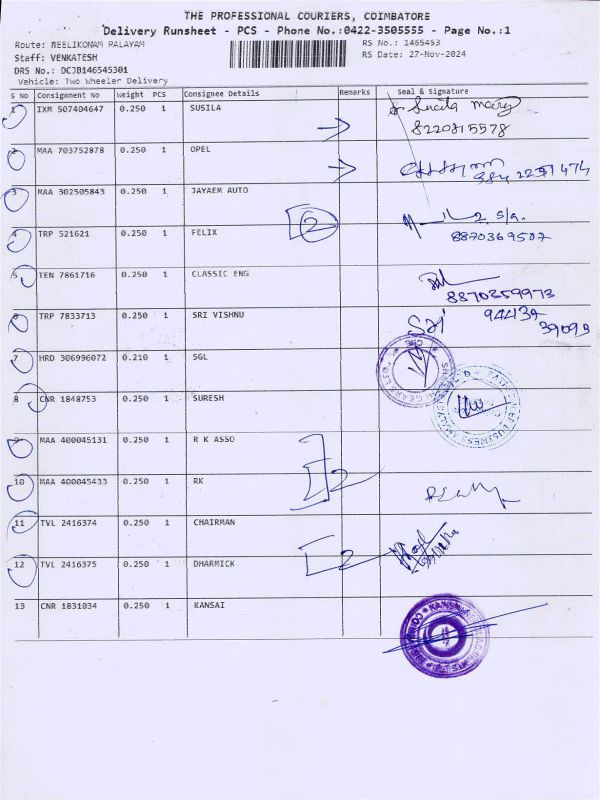 THE PROFESSIONAL COURIERS, COIMBATORE
Delivery Runsheet - PCS - Phone No.:0422-3505555 - Page No.:1
Route: NEELIKONAM PALAYAM
RS No.: 1465453
Staff: VENKATESH
RS Date: 27-Nov-2024
DRS No.: DCJB146545301
Vehicle: Two Wheeler Delivery
S No Consignment No Weight PCS Consignee Details Remarks Seal & Signature
1 IXM 507404647 0.250 1 SUSILA
8220815578
2 MAA 703752878 0.250 1 OPEL
3 MAA 302505843 0.250 1 JAYAEM AUTO
2
4 TRP 521621 0.250 1 FELIX
8870369507
5 TEN 7861716 0.250 1 CLASSIC ENG
8870259973
6 TRP 7833713 0.250 1 SRI VISHNU
94439
39099
7 HRD 306996072 0.210 1 SGL
8 CNR 1848753 0.250 1 SURESH
9 MAA 400045131 0.250 1 R K ASSO
10 MAA 400045433 0.250 1 RK
2
11 TVL 2416374 0.250 1 CHAIRMAN
2
12 TVL 2416375 0.250 1 DHARMICK
13 CNR 1831034 0.250 1 KANSAI